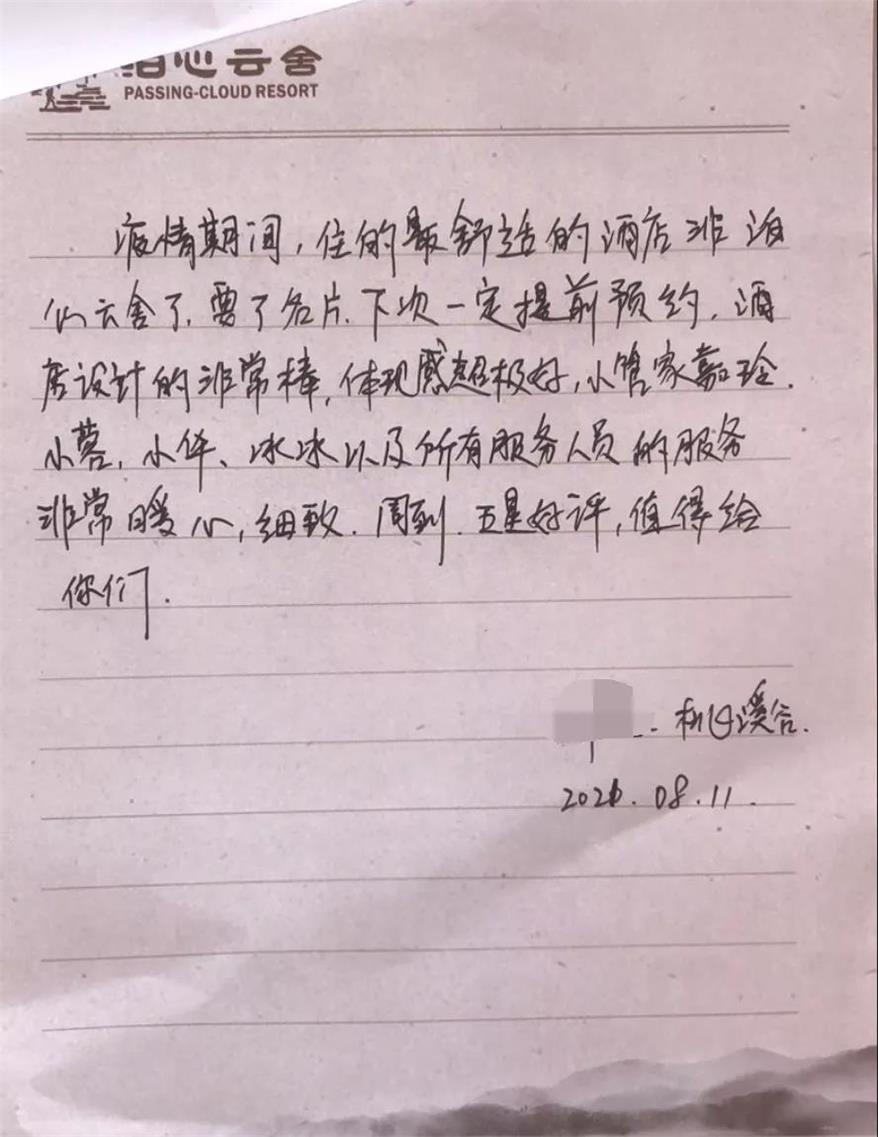 泊心云舍
PASSING-CLOUD RESORT
疫情期间,住的最舒适的酒店非泊
心云舍了.要了名片.下次一定提前预约.酒
店设计的非常棒,体现感超极好,小管家嘉玲.
小蓉,小华、冰冰以及所有服务人员的服务
非常暖心,细致.周到.五星好评,值得给
你们.
溪谷.
08.11.